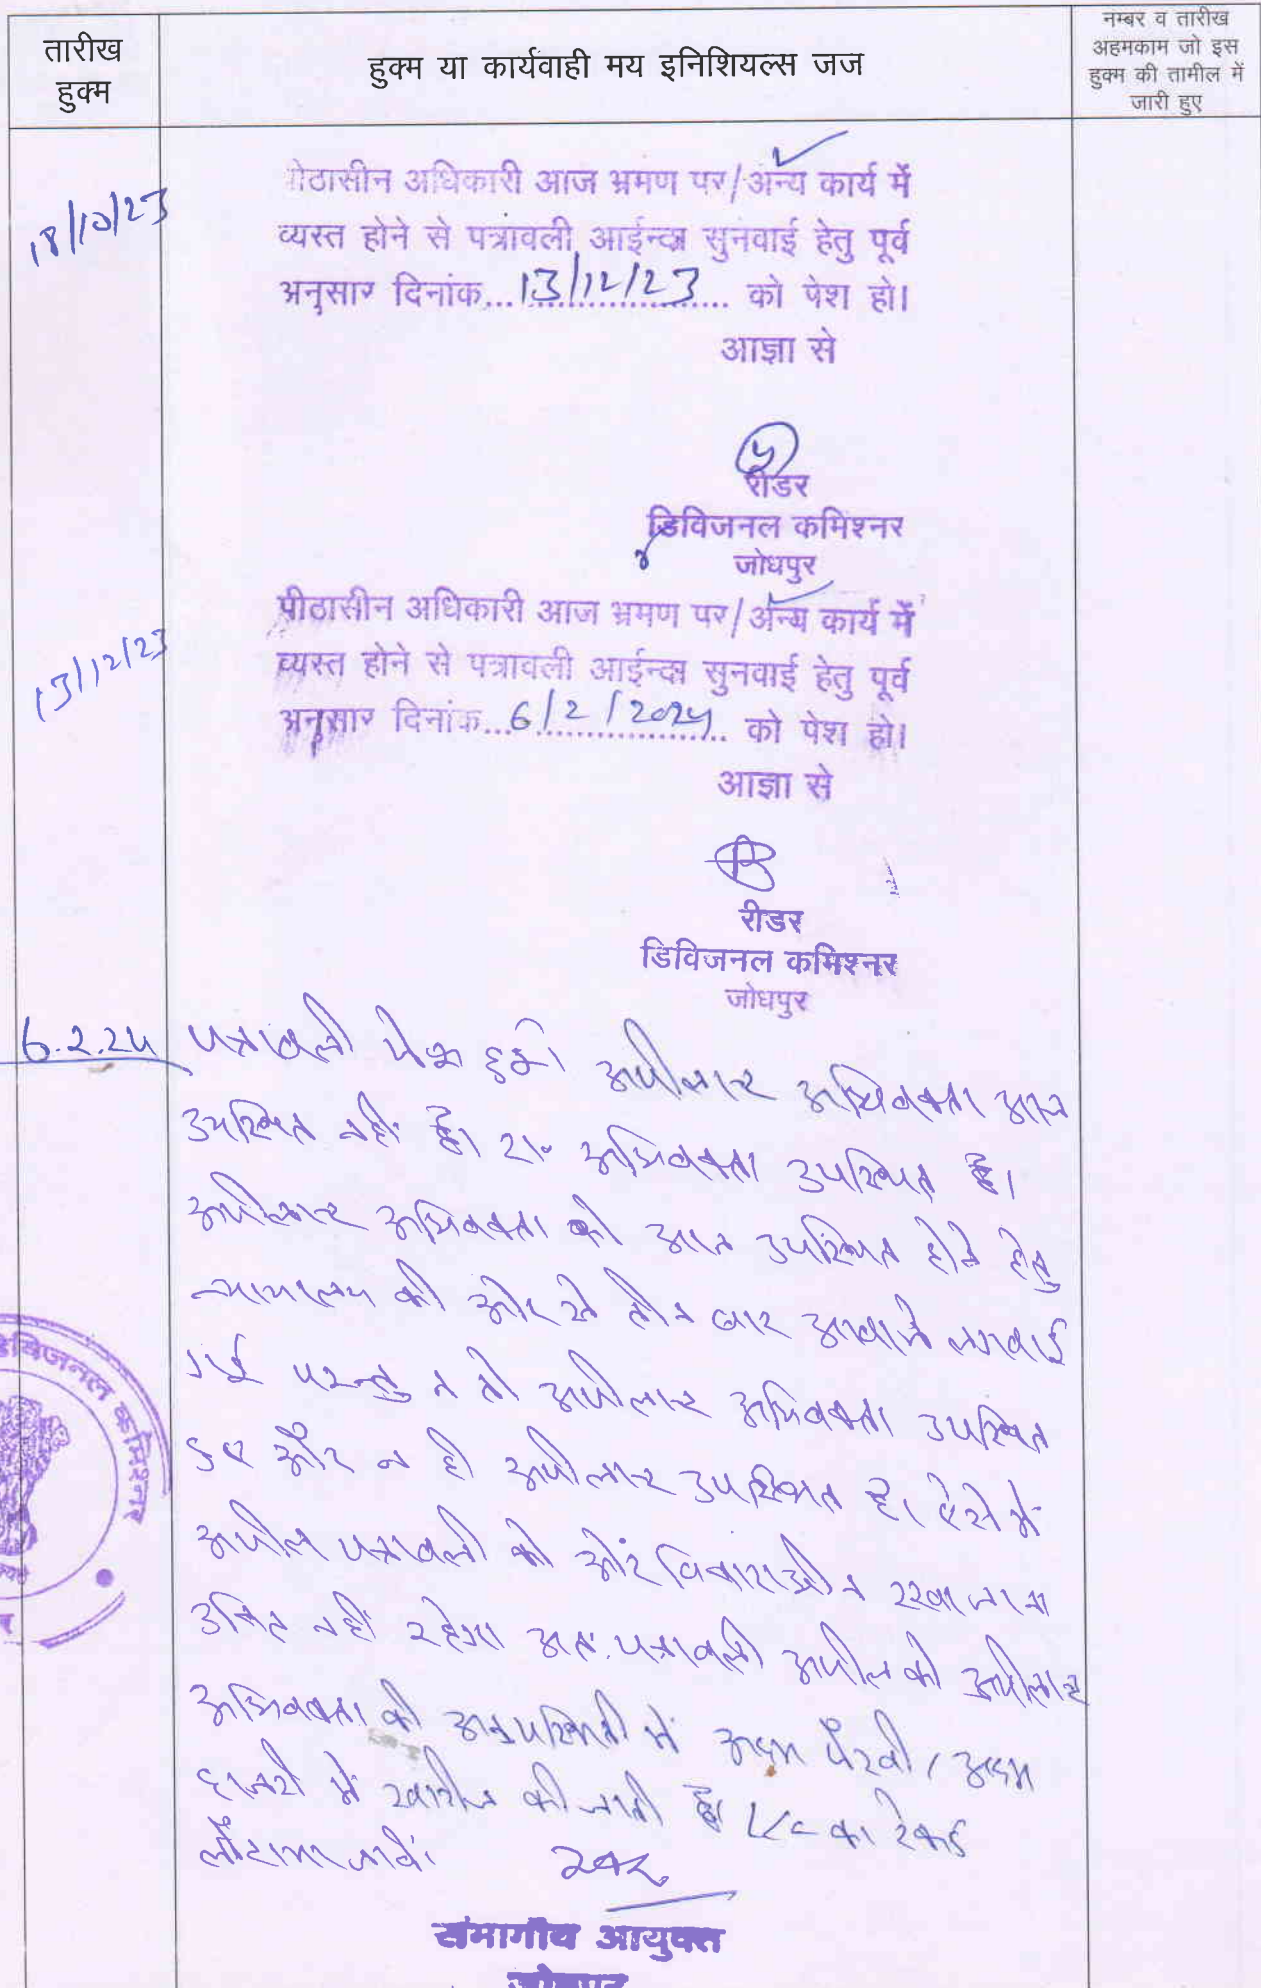 तारीख
हुक्म
हुक्म या कार्यवाही मय इनिशियल्स जज
नम्बर व तारीख
अहमकाम जो इस
हुक्म की तामील में
जारी हुए
18/10/23
पीठासीन अधिकारी आज भ्रमण पर/अन्य कार्य में
व्यस्त होने से पत्रावली आईन्दा सुनवाई हेतु पूर्व
अनुसार दिनांक...13/12/23... को पेश हो।
आज्ञा से
रीडर
डिविजनल कमिश्नर
जोधपुर
13/12/23
पीठासीन अधिकारी आज भ्रमण पर/अन्य कार्य में
व्यस्त होने से पत्रावली आईन्दा सुनवाई हेतु पूर्व
अनुसार दिनांक...6/2/2024... को पेश हो।
आज्ञा से
रीडर
डिविजनल कमिश्नर
जोधपुर
6.2.24 पत्रावली पेश हुई। अपीलान्ट अधिवक्ता आज
उपस्थित नहीं है। रा० अभिवक्ता उपस्थित है।
अपीलान्ट अभिवक्ता को आज उपस्थित होने हेतु
न्यायालय की ओर से तीन बार आवाजे लगवाई
गई परन्तु न तो अपीलान्ट अभिवक्ता उपस्थित
हुए और न ही अपीलान्ट उपस्थित है। ऐसे में
अपील पत्रावली को और विचाराधीन रखा जाना
उचित नहीं रहेगा अतः पत्रावली अपील को अपीलान्ट
अभिवक्ता की अनुपस्थिती में अदम पैरवी/अदम
हाजरी में खारीज की जाती है। L/C का रेकर्ड
लौटाया जावे।
संभागीय आयुक्त
जोधपुर
डिविजनल कमिश्नर